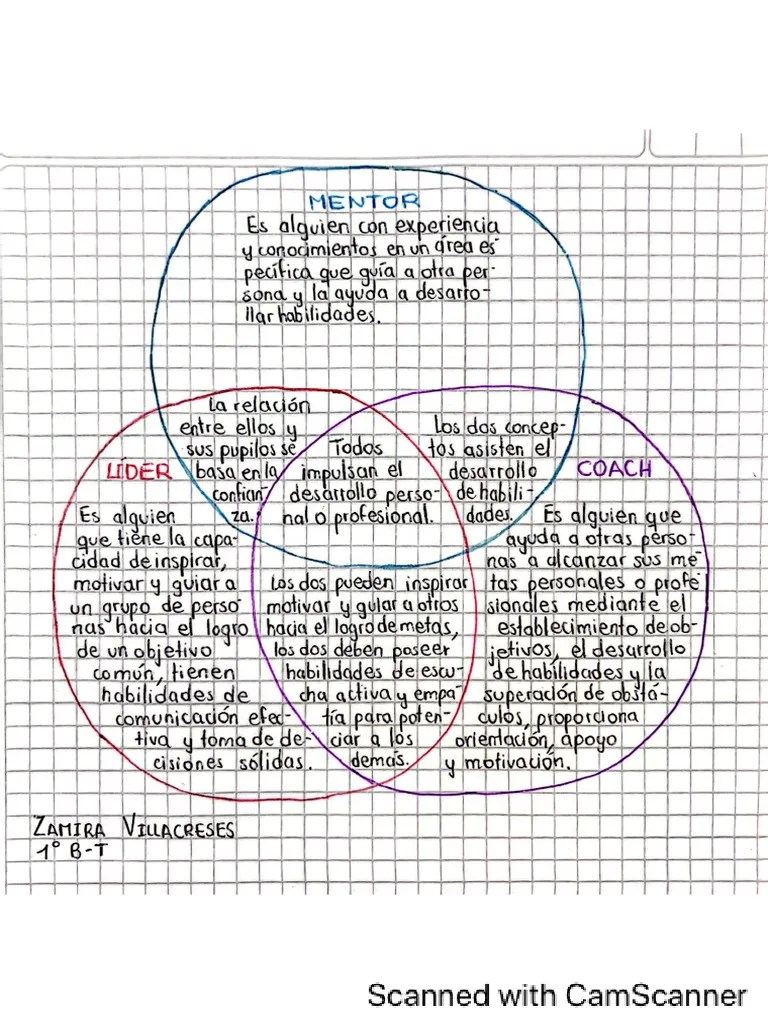 MENTOR
Es alguien con experiencia
y conocimientos en un área es-
pecífica que guía a otra per-
sona y la ayuda a desarro-
llar habilidades.
La relación
entre ellos y
sus pupilos se
basa en la
confian-
za.
Todos
impulsan el
desarrollo perso-
nal o profesional.
Los dos concep-
tos asisten el
desarrollo
de habili-
dades.
LÍDER
Es alguien
que tiene la capa-
cidad de inspirar,
motivar y guiar a
un grupo de perso-
nas hacia el logro
de un objetivo
común, tienen
habilidades de
comunicación efec-
tiva y toma de de-
cisiones sólidas.
Los dos pueden inspirar
motivar y guiar a otros
hacia el logro de metas,
los dos deben poseer
habilidades de escu-
cha activa y empa-
tía para poten-
ciar a los
demás.
COACH
Es alguien que
ayuda a otras perso-
nas a alcanzar sus me-
tas personales o profe-
sionales mediante el
establecimiento de ob-
jetivos, el desarrollo
de habilidades y la
superación de obstá-
culos, proporciona
orientación, apoyo
y motivación.
ZAMIRA VILLACRESES
1° B-T
Scanned with CamScanner